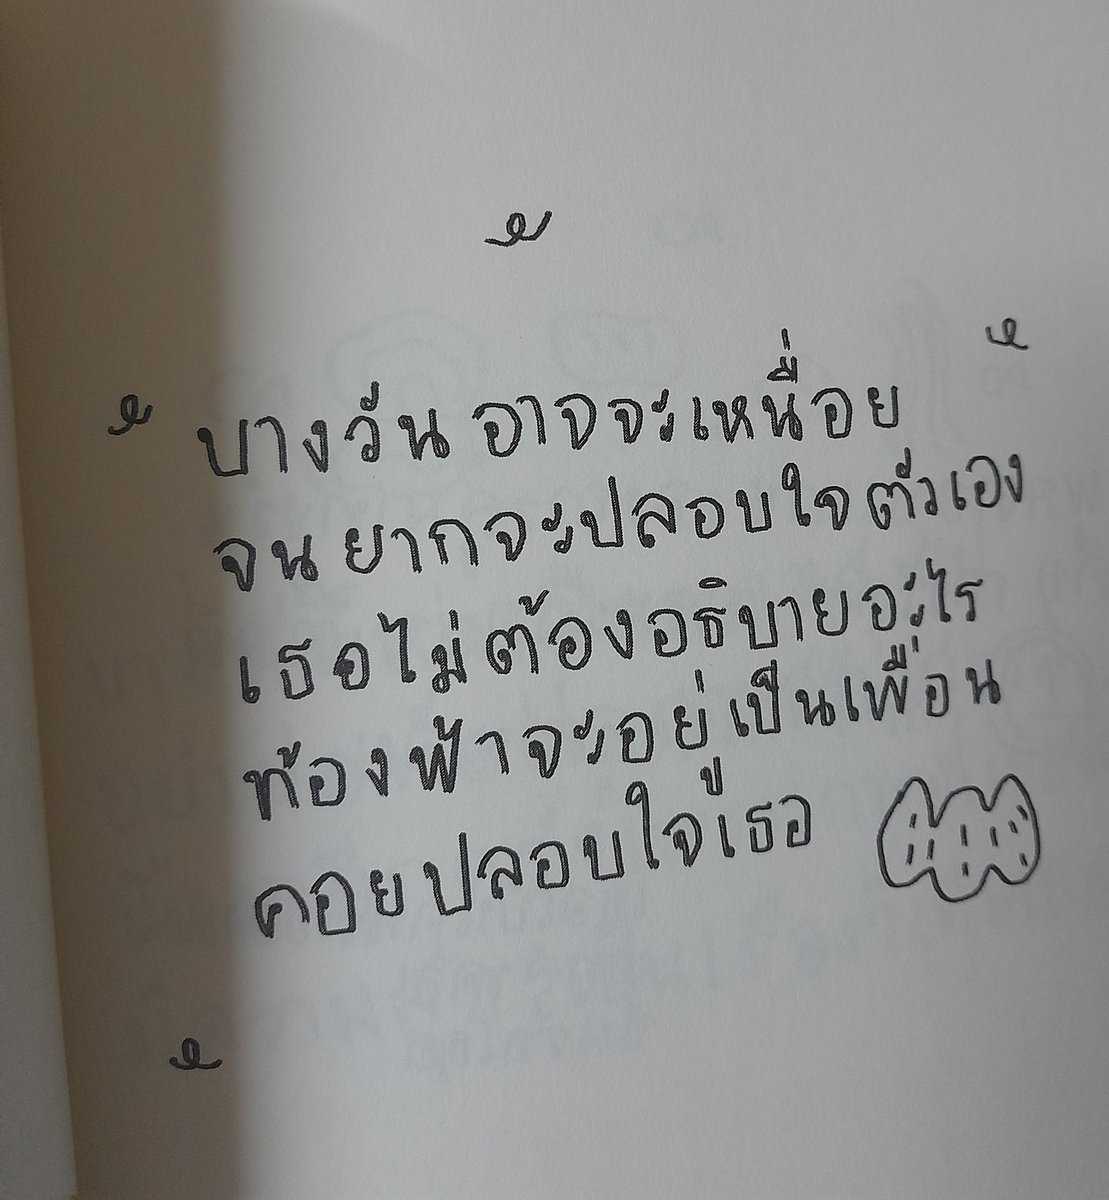 บางวันอาจจะเหนื่อย
จนยากจะปลอบใจตัวเอง
เธอไม่ต้องอธิบายอะไร
ท้องฟ้าจะอยู่เป็นเพื่อน
คอยปลอบใจเธอ